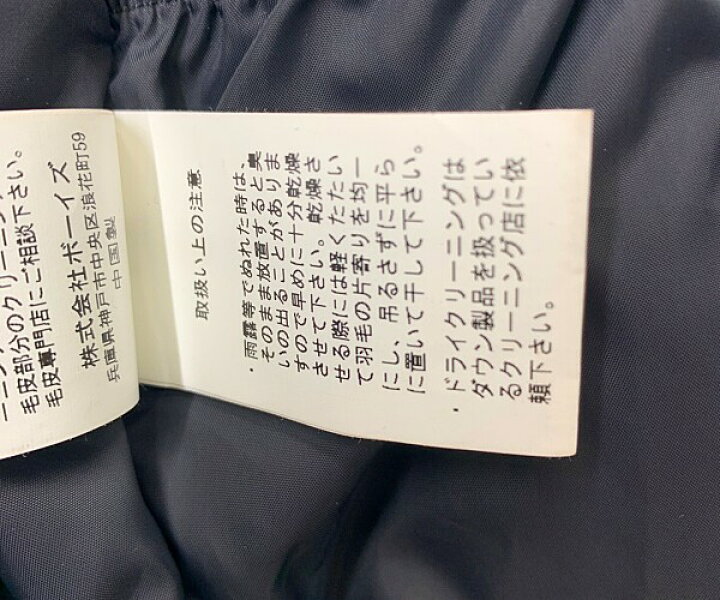 毛皮部分のクリーニング
毛皮専門店にご相談下さい。
株式会社ボーイズ
兵庫県神戸市中央区浪花町59
中国製
取扱い上の注意
・雨露等でぬれた時は、
そのまま放置すると臭
いの出ることがありま
すので早めに十分乾燥
させて下さい。乾燥さ
せる際には軽くたたい
て羽毛の片寄りを均一
にし、吊るさずに平ら
に置いて干して下さい。
・ドライクリーニングは
ダウン製品を扱ってい
るクリーニング店に依
頼下さい。